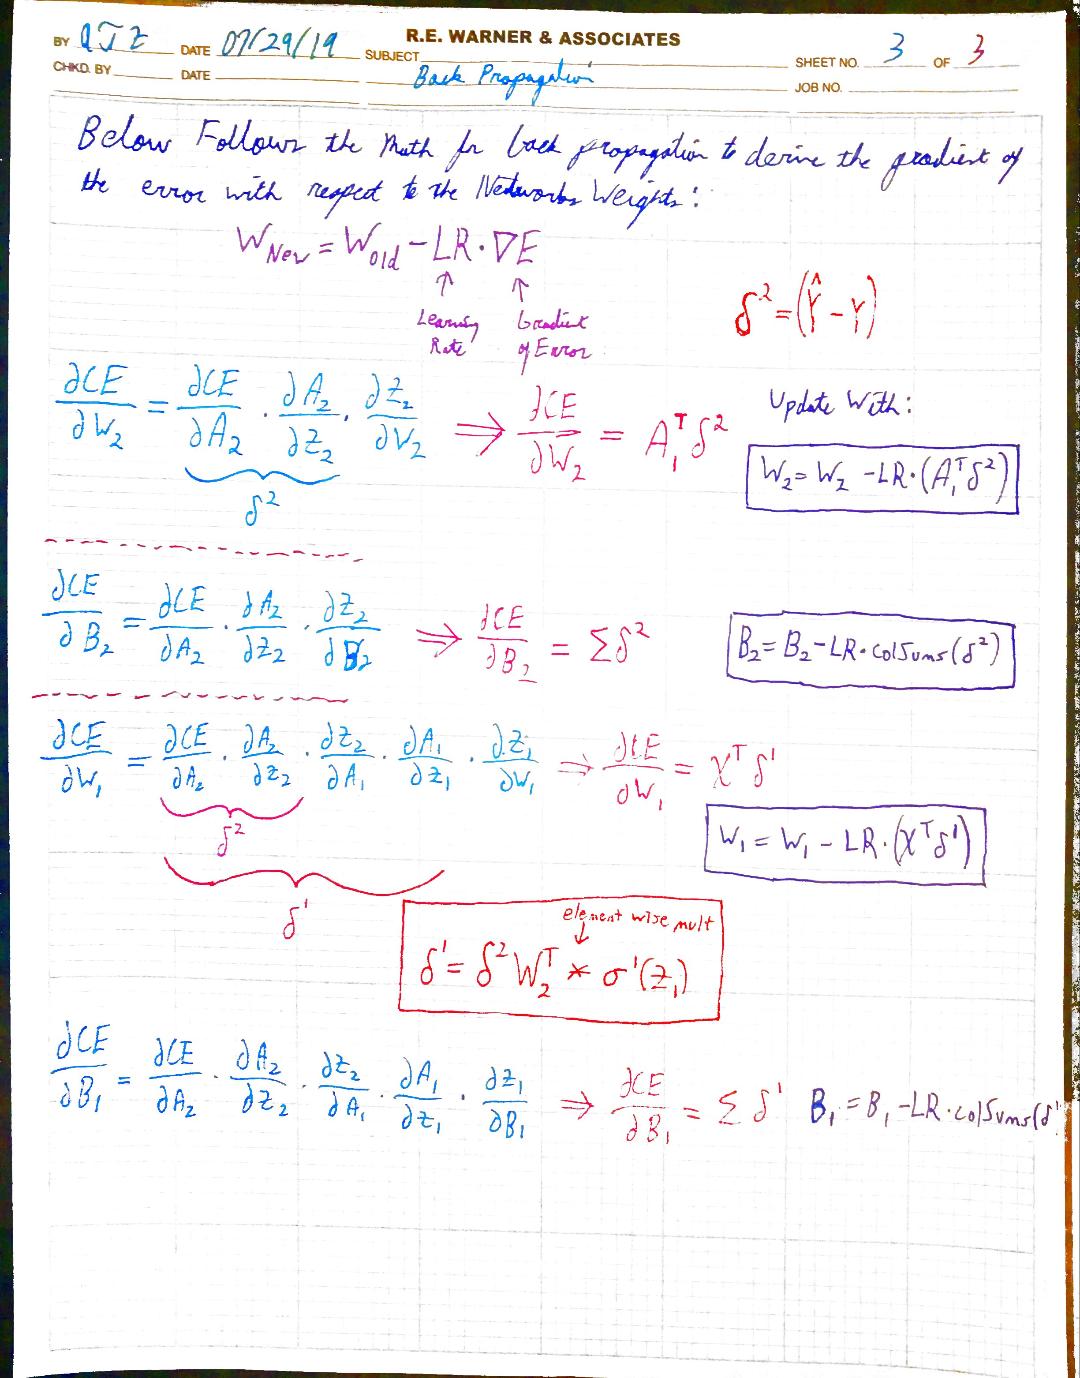 R.E. WARNER & ASSOCIATES
BY QJZ DATE 07/29/19 SUBJECT Back Propagation SHEET NO. 3 OF 3
CHKD. BY DATE JOB NO.
Below Follows the Math for back propagation to derive the gradient of
the error with respect to the Networks Weights:
W_New = W_old - LR · ∇E
↑ ↑
Learning Rate
Gradient of Error
δ² = (Ŷ - Y)
∂CE/∂W₂ = ∂CE/∂A₂ · ∂A₂/∂Z₂ · ∂Z₂/∂W₂ ⇒ ∂CE/∂W₂ = A₁ᵀ δ²
δ²
Update With:
W₂ = W₂ - LR · (A₁ᵀ δ²)
∂CE/∂B₂ = ∂CE/∂A₂ · ∂A₂/∂Z₂ · ∂Z₂/∂B₂ ⇒ ∂CE/∂B₂ = Σδ²
B₂ = B₂ - LR · colSums(δ²)
∂CE/∂W₁ = ∂CE/∂A₂ · ∂A₂/∂Z₂ · ∂Z₂/∂A₁ · ∂A₁/∂Z₁ · ∂Z₁/∂W₁ ⇒ ∂CE/∂W₁ = Xᵀ δ¹
δ²
W₁ = W₁ - LR · (Xᵀ δ¹)
δ¹
element wise mult
↓
δ¹ = δ² W₂ᵀ * σ'(Z₁)
∂CE/∂B₁ = ∂CE/∂A₂ · ∂A₂/∂Z₂ · ∂Z₂/∂A₁ · ∂A₁/∂Z₁ · ∂Z₁/∂B₁ ⇒ ∂CE/∂B₁ = Σ δ¹ B₁ = B₁ - LR · colSums(δ¹